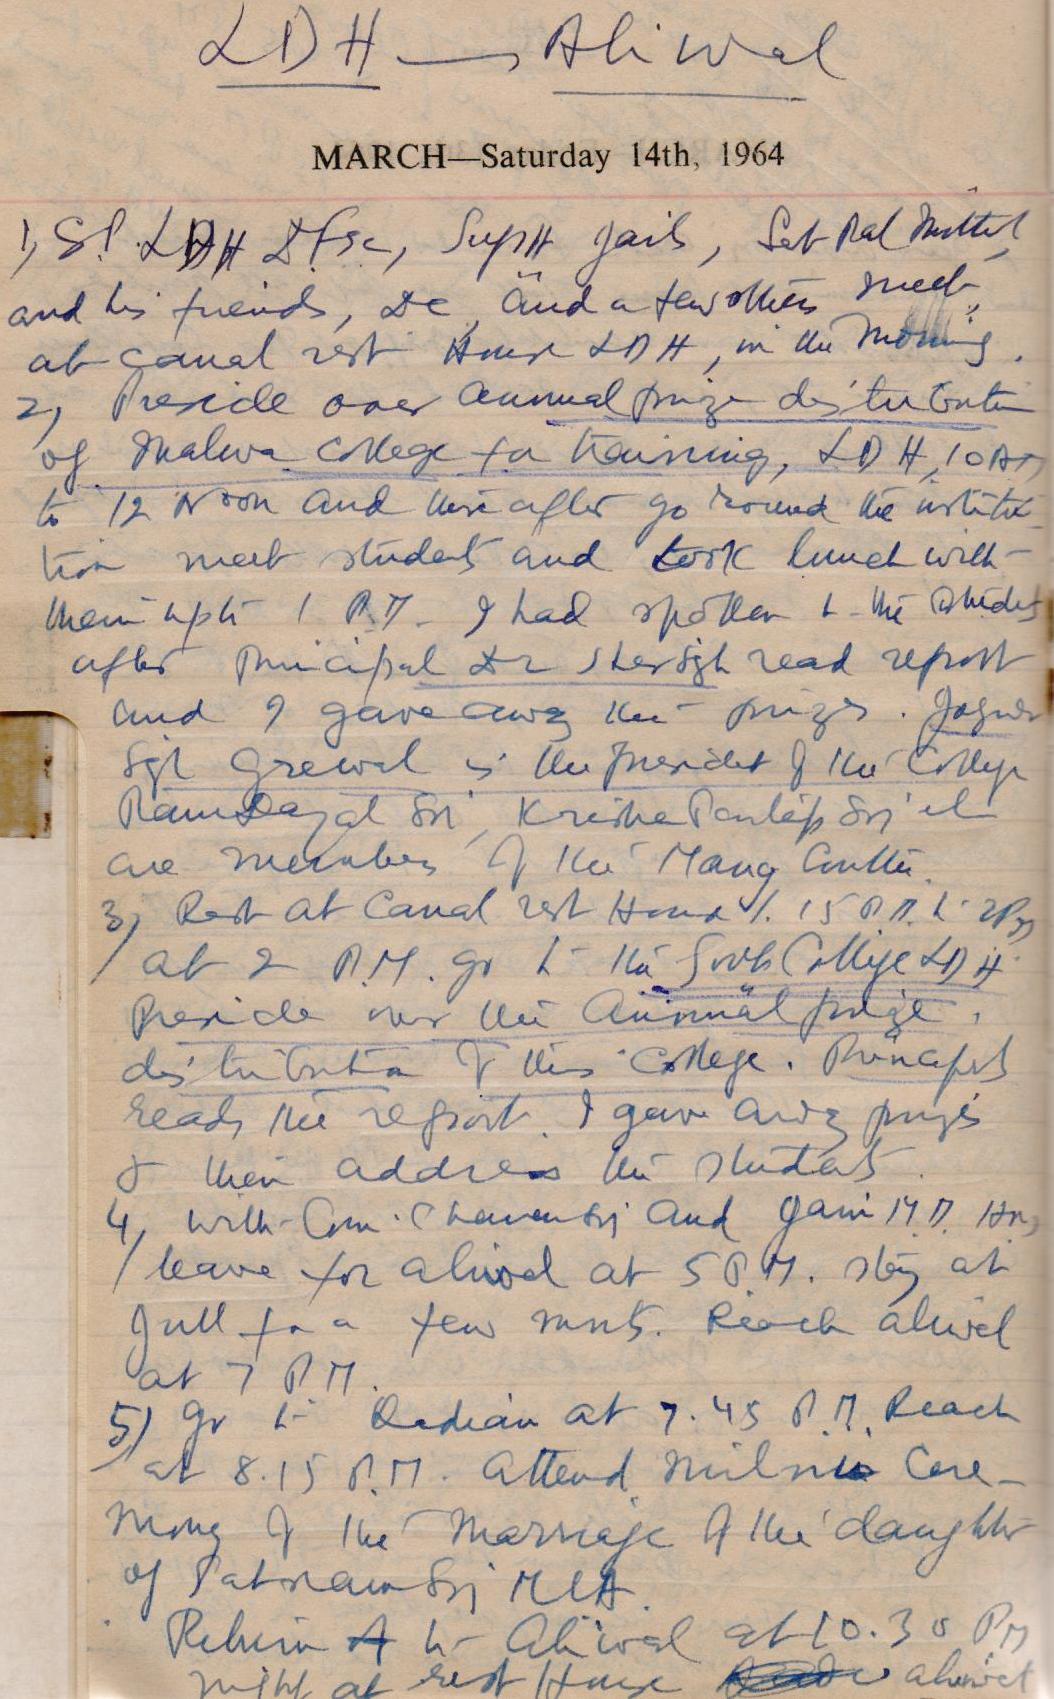 LDH — Aliwal
MARCH—Saturday 14th, 1964
1, S.P. LDH D.Fsc, Supt Jails, Sat Pal Mittal,
and his friends, DC, and a few others meet
at canal rest House LDH, in the Morning.
2, Preside over annual prize distribution
of Malwa College for training, LDH, 10 AM
to 12 Noon and there after go round the institu-
tion meet students and took lunch with
them upto 1 P.M. I had spoken to the students
after Principal Dr Sher Sgh read report
and I gave away the prizes.
Sgh Grewal is the President of the College
Ram Dayal Sin, Krishna
are members of the Mang Comttee.
3, Rest at Canal rest House 1.15 P.M. to 2 PM
at 2 P.M. go to the Govt College LDH
Preside over the Annual prize
distribution of this College. Principal
reads the report. I gave away prizes
& then address the students.
4, with and Gani M.D.
leave for aliwal at 5 P.M. stay at
Jull for a few mnts. Reach aliwal
at 7 P.M.
5) go to Dadian at 7.45 P.M. Reach
at 8.15 P.M. attend Milni Cere-
mony of the Marriage of the daughter
of Satnam Sgh MLA.
Return to Aliwal at 10.30 PM
night at rest House aliwal